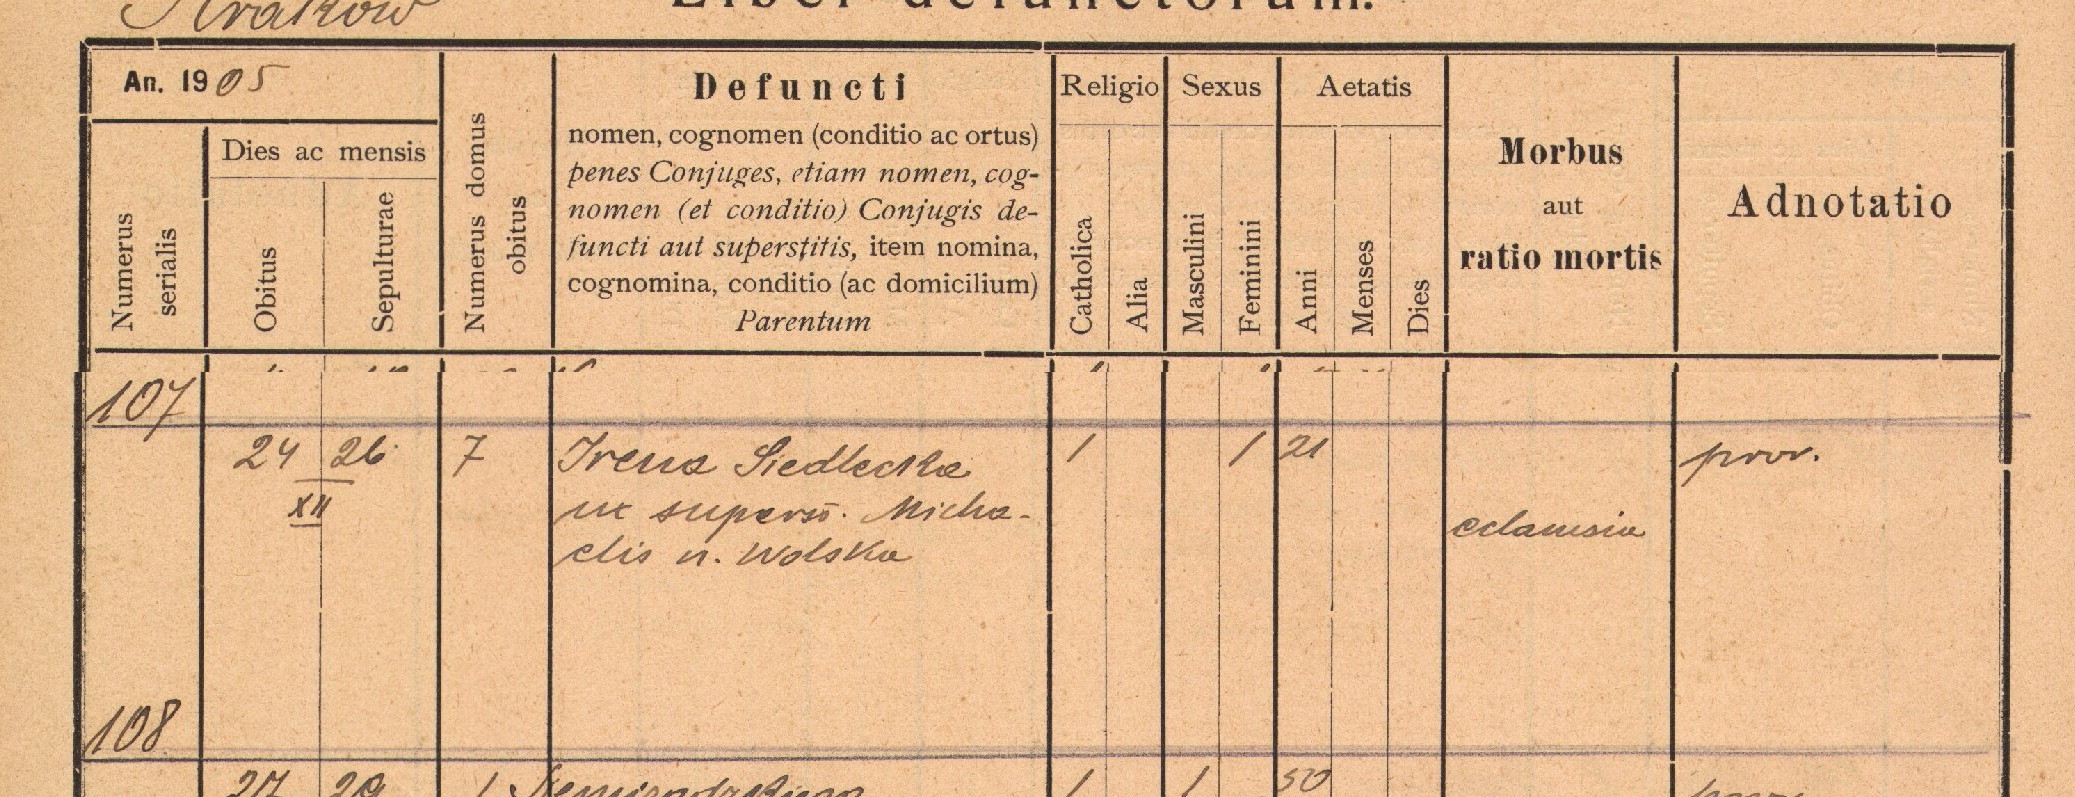 Kraków
Liber defunctorum.
An. 1905
Numerus serialis
Dies ac mensis
Obitus
Sepulturae
Numerus domus obitus
Defuncti
nomen, cognomen (conditio ac ortus)
penes Conjuges, etiam nomen, cog-
nomen (et conditio) Conjugis de-
functi aut superstitis, item nomina,
cognomina, conditio (ac domicilium)
Parentum
Religio
Catholica
Alia
Sexus
Masculini
Feminini
Aetatis
Anni
Menses
Dies
Morbus
aut
ratio mortis
Adnotatio
107
24 26 7 Irena Siedlecka 1 1 21 prov.
XII
ux superst. Micha-
elis n. Wolska
eclamsia
108
27 29 1 1 1 50